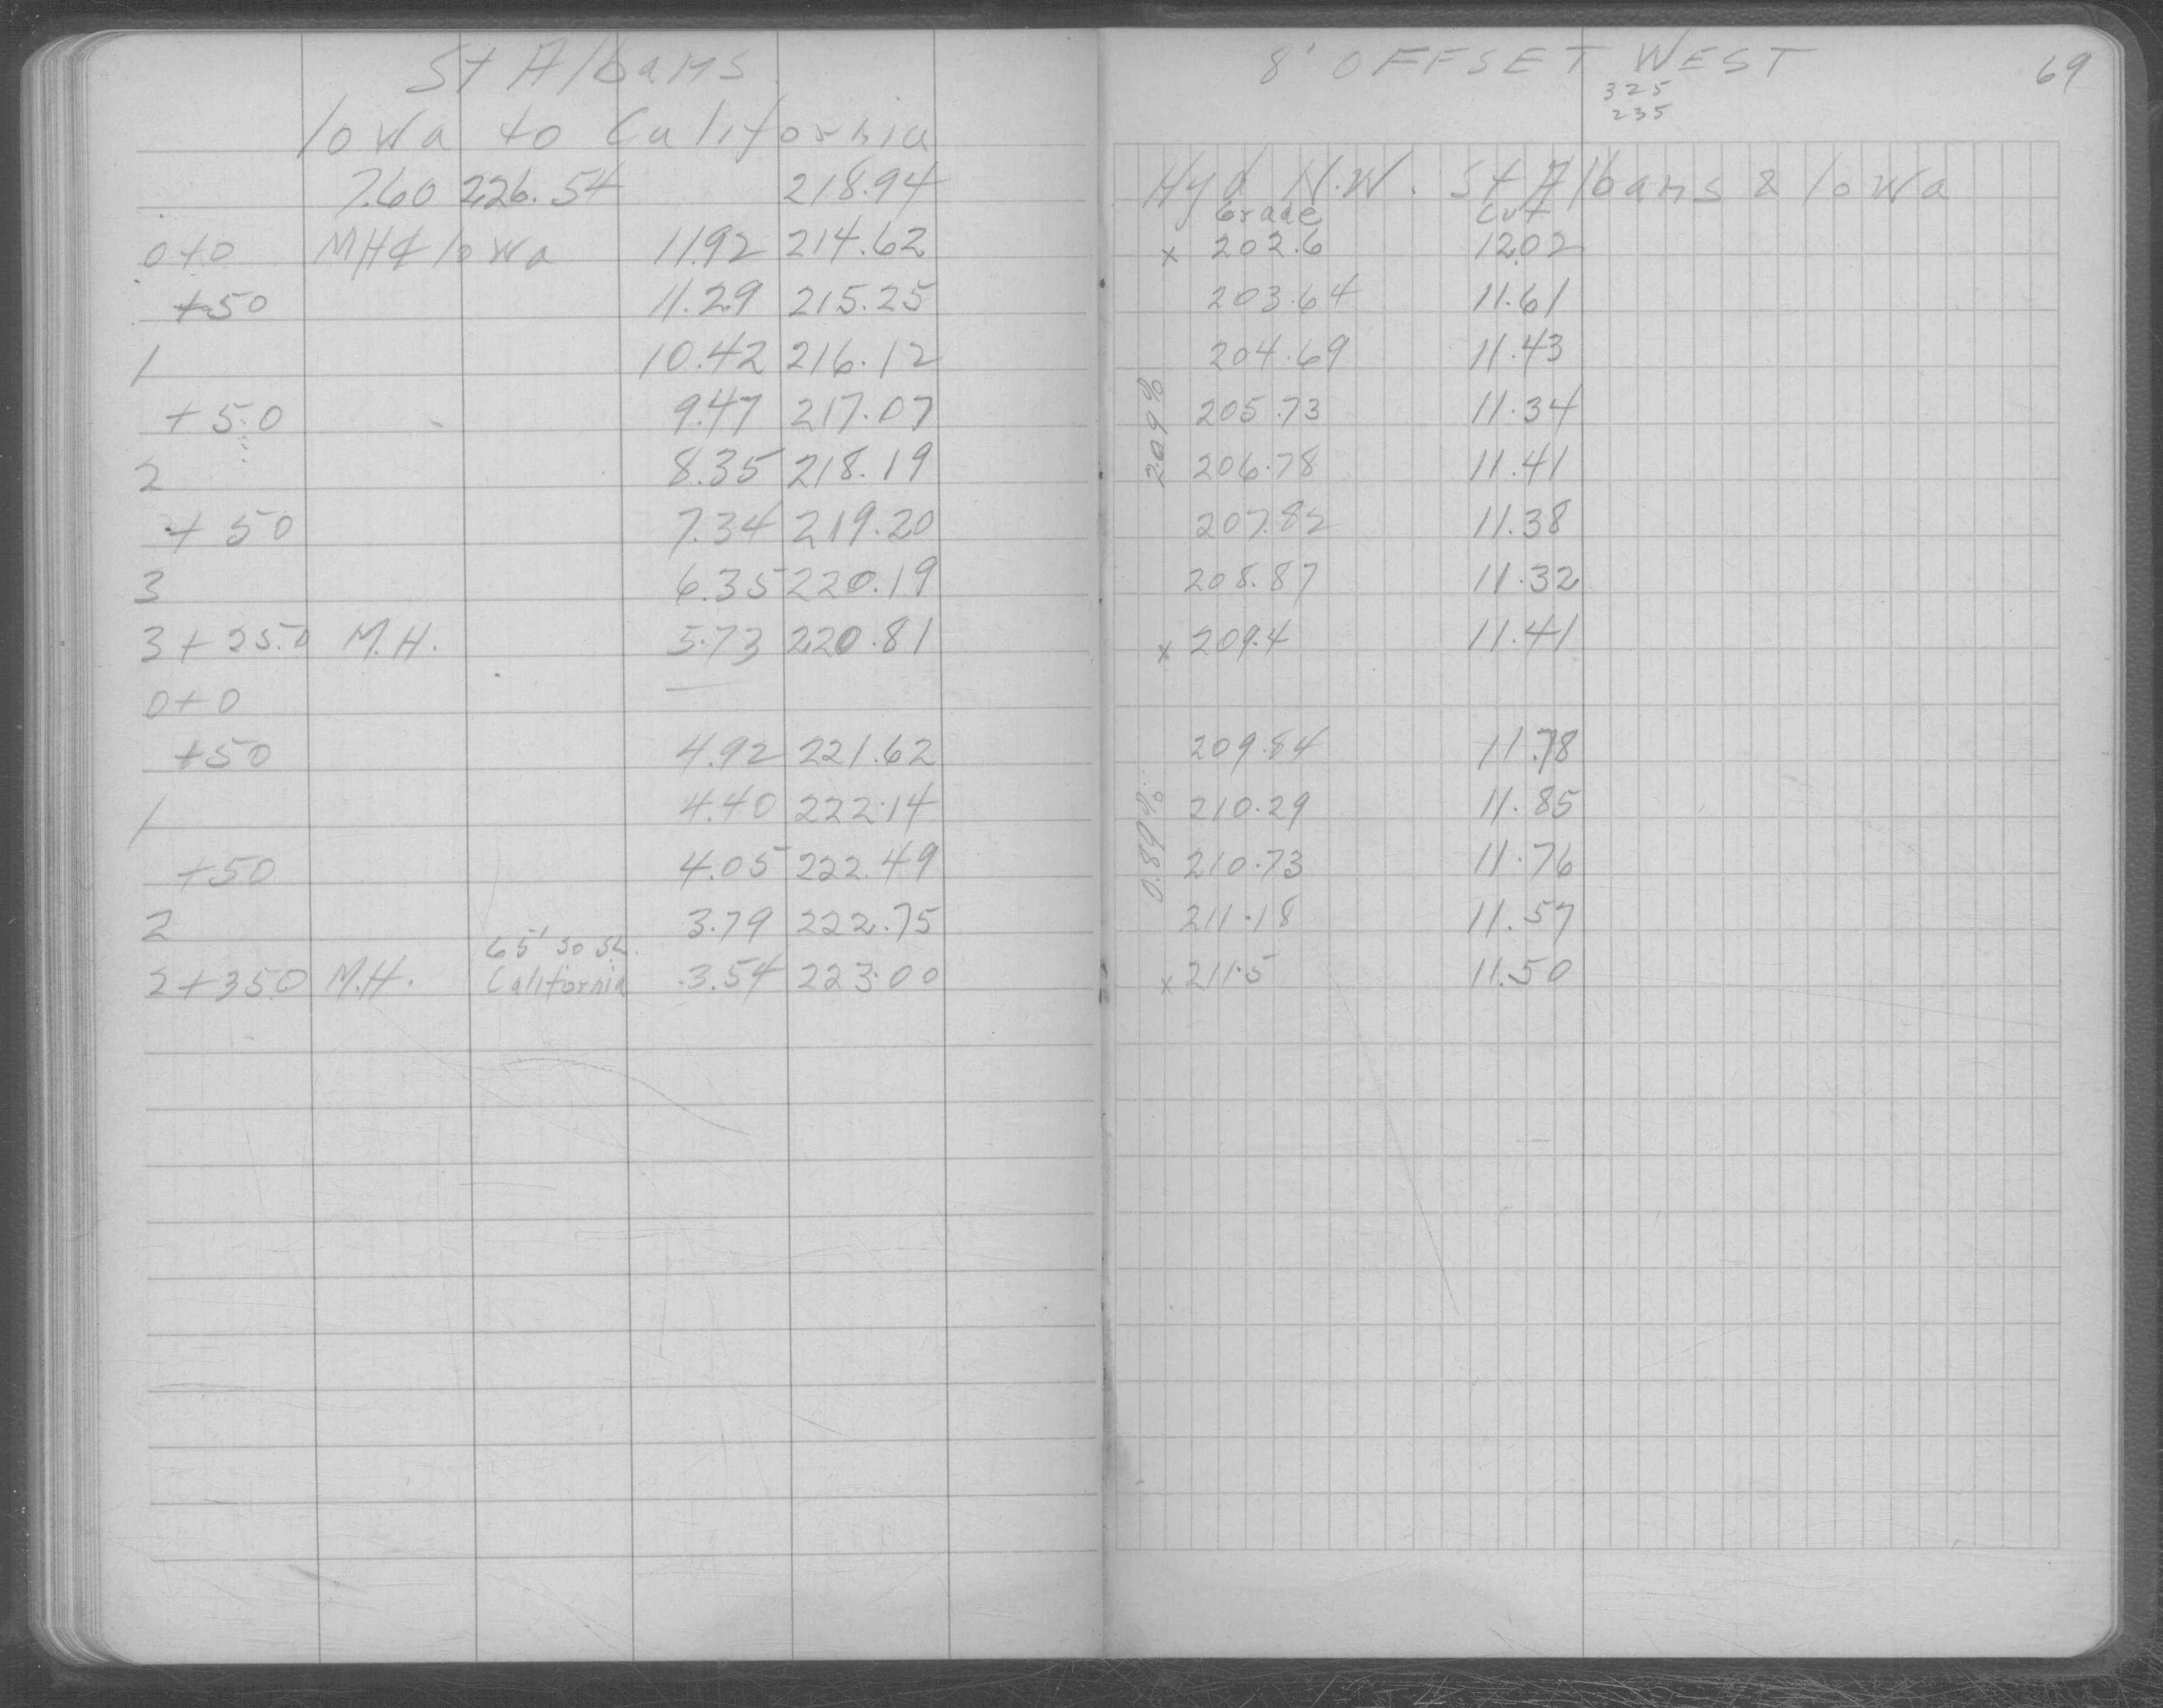 St Albans
Iowa to California
7.60 226.54 218.94
0+0 MH ℄ Iowa 11.92 214.62
+50 11.29 215.25
1 10.42 216.12
+50 9.47 217.07
2 8.35 218.19
+50 7.34 219.20
3 6.35 220.19
3+25.0 M.H. 5.73 220.81
0+0 —
+50 4.92 221.62
1 4.40 222.14
+50 4.05 222.49
2 3.79 222.75
65' so SL.
2+35.0 M.H. California 3.54 223.00
8' OFFSET WEST 69
325
235
Hyd N.W. St Albans & Iowa
Grade Cut
x 202.6 12.02
203.64 11.61
204.69 11.43
205.73 11.34
2.09%
206.78 11.41
207.82 11.38
208.87 11.32
x 209.4 11.41
209.84 11.78
210.29 11.85
0.89%
210.73 11.76
211.18 11.57
x 211.5 11.50